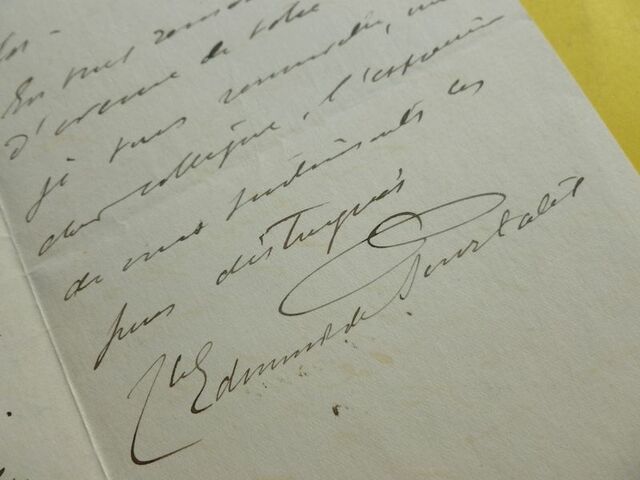 En vous remer
d'avance de votre
je vous renouvelle, mon
cher collègue, l'expression
de mes sentiments les
plus distingués
Cte Edmond de Pourtalès